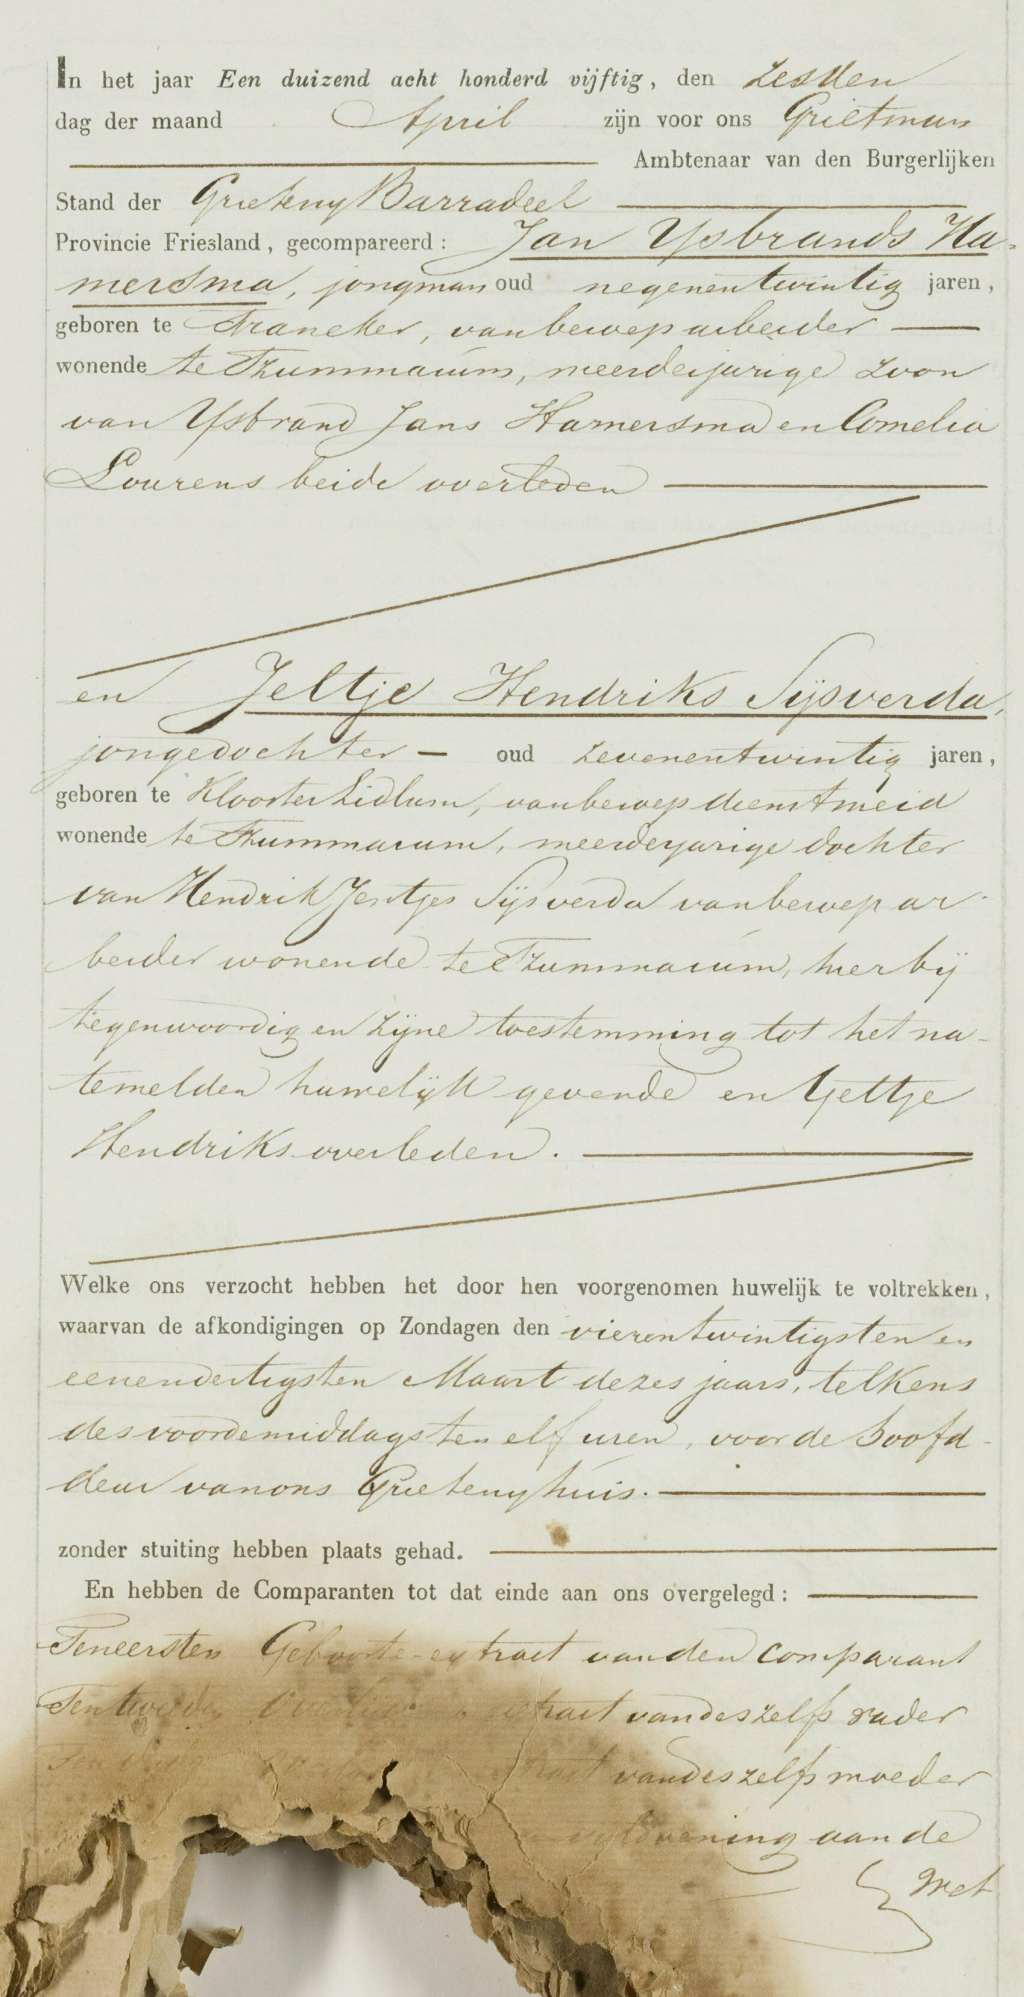 In het jaar Een duizend acht honderd vijftig, den zesden
dag der maand April zijn voor ons Grietman
Ambtenaar van den Burgerlijken
Stand der Grieteny Barradeel
Provincie Friesland, gecompareerd: Jan Ysbrands Ha-
mersma, jongman oud negenentwintig jaren,
geboren te Franeker, van beroep arbeider
wonende te Tzummarum, meerderjarige zoon
van Ysbrand Jans Hamersma en Cornelia
Lourens beide overleden
en Jeltje Hendriks Sijsverda,
jongedochter oud zevenentwintig jaren,
geboren te Klooster Lidlum, van beroep dienstmeid
wonende te Tzummarum, meerderjarige dochter
van Hendrik Jentjes Sijsverda van beroep ar-
beider wonende te Tzummarum, hierbij
tegenwoordig en zijne toestemming tot het na-
temelden huwelijk gevende en Yettje
Hendriks overleden.
Welke ons verzocht hebben het door hen voorgenomen huwelijk te voltrekken,
waarvan de afkondigingen op Zondagen den vierentwintigsten en
eenendertigsten Maart dezes jaars, telkens
des voordemiddags ten elf uren, voor de hoofd-
deur van ons Grietenyhuis.
zonder stuiting hebben plaats gehad.
En hebben de Comparanten tot dat einde aan ons overgelegd:
Ten eersten Geboorte-extract van den comparant
Ten tweeden extract van deszelfs vader
van deszelfs moeder
van de
met